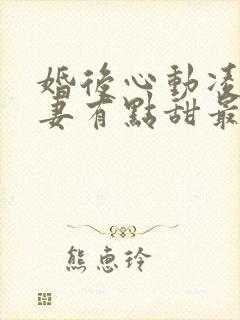 婚後心動凌
妻有點甜最
熊惠玲